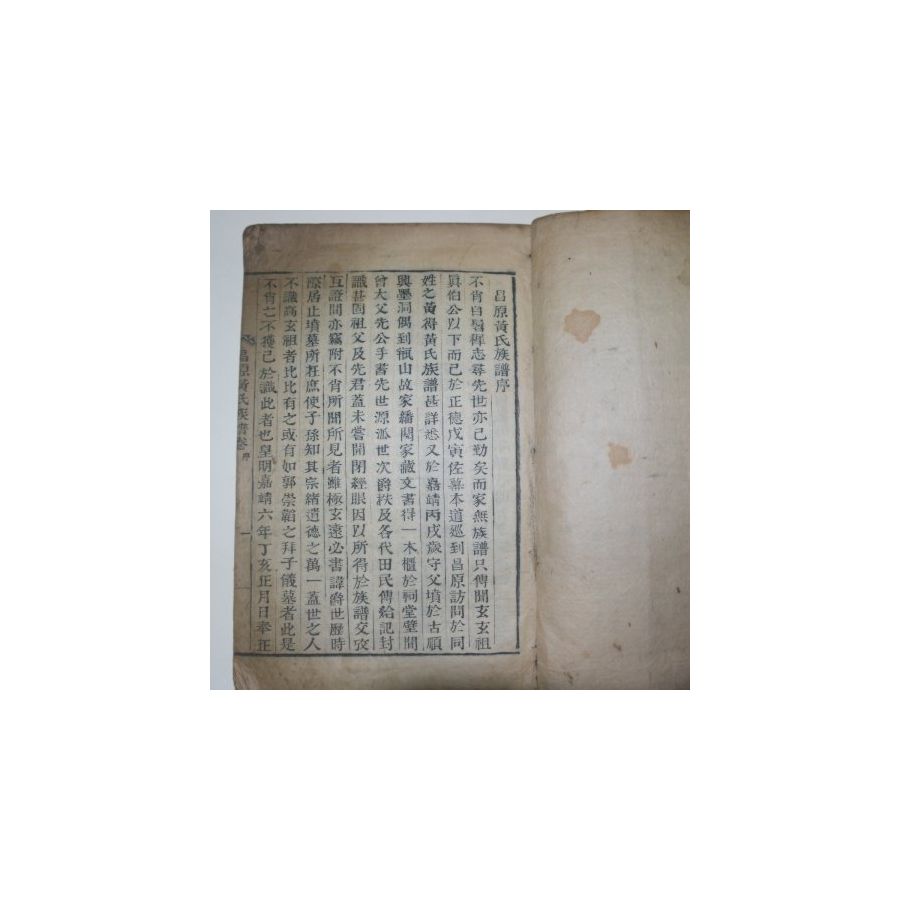 昌原黃氏族譜序
不肖自髫稚志尋先世亦已勤矣而家無族譜只傳聞玄玄祖
眞伯公以下而已於正德戊寅佐幕本道巡到昌原訪問於同
姓之黃得黃氏族譜甚詳悉又於嘉靖丙戌歲守父墳於古順
興墨洞偶到福山故家繙閱家藏文書得一木櫃於祠堂壁間
曾大父先公手書先世源派世次爵秩及各代田民傳給記封
識甚固祖父及先君蓋未嘗開閉經眼因以所得於族譜交攷
互證間亦竊附不肖所聞所見者雖極玄遠必書諱爵世歷時
際居止墳墓所在庶使子孫知其宗緒遺德之萬一蓋世之人
不識高玄祖者比比有之或有如郭崇韜之拜子儀墓者此是
不肖之不獲已於識此者也皇明嘉靖六年丁亥正月日奉正
昌原黃氏族譜卷 序 一